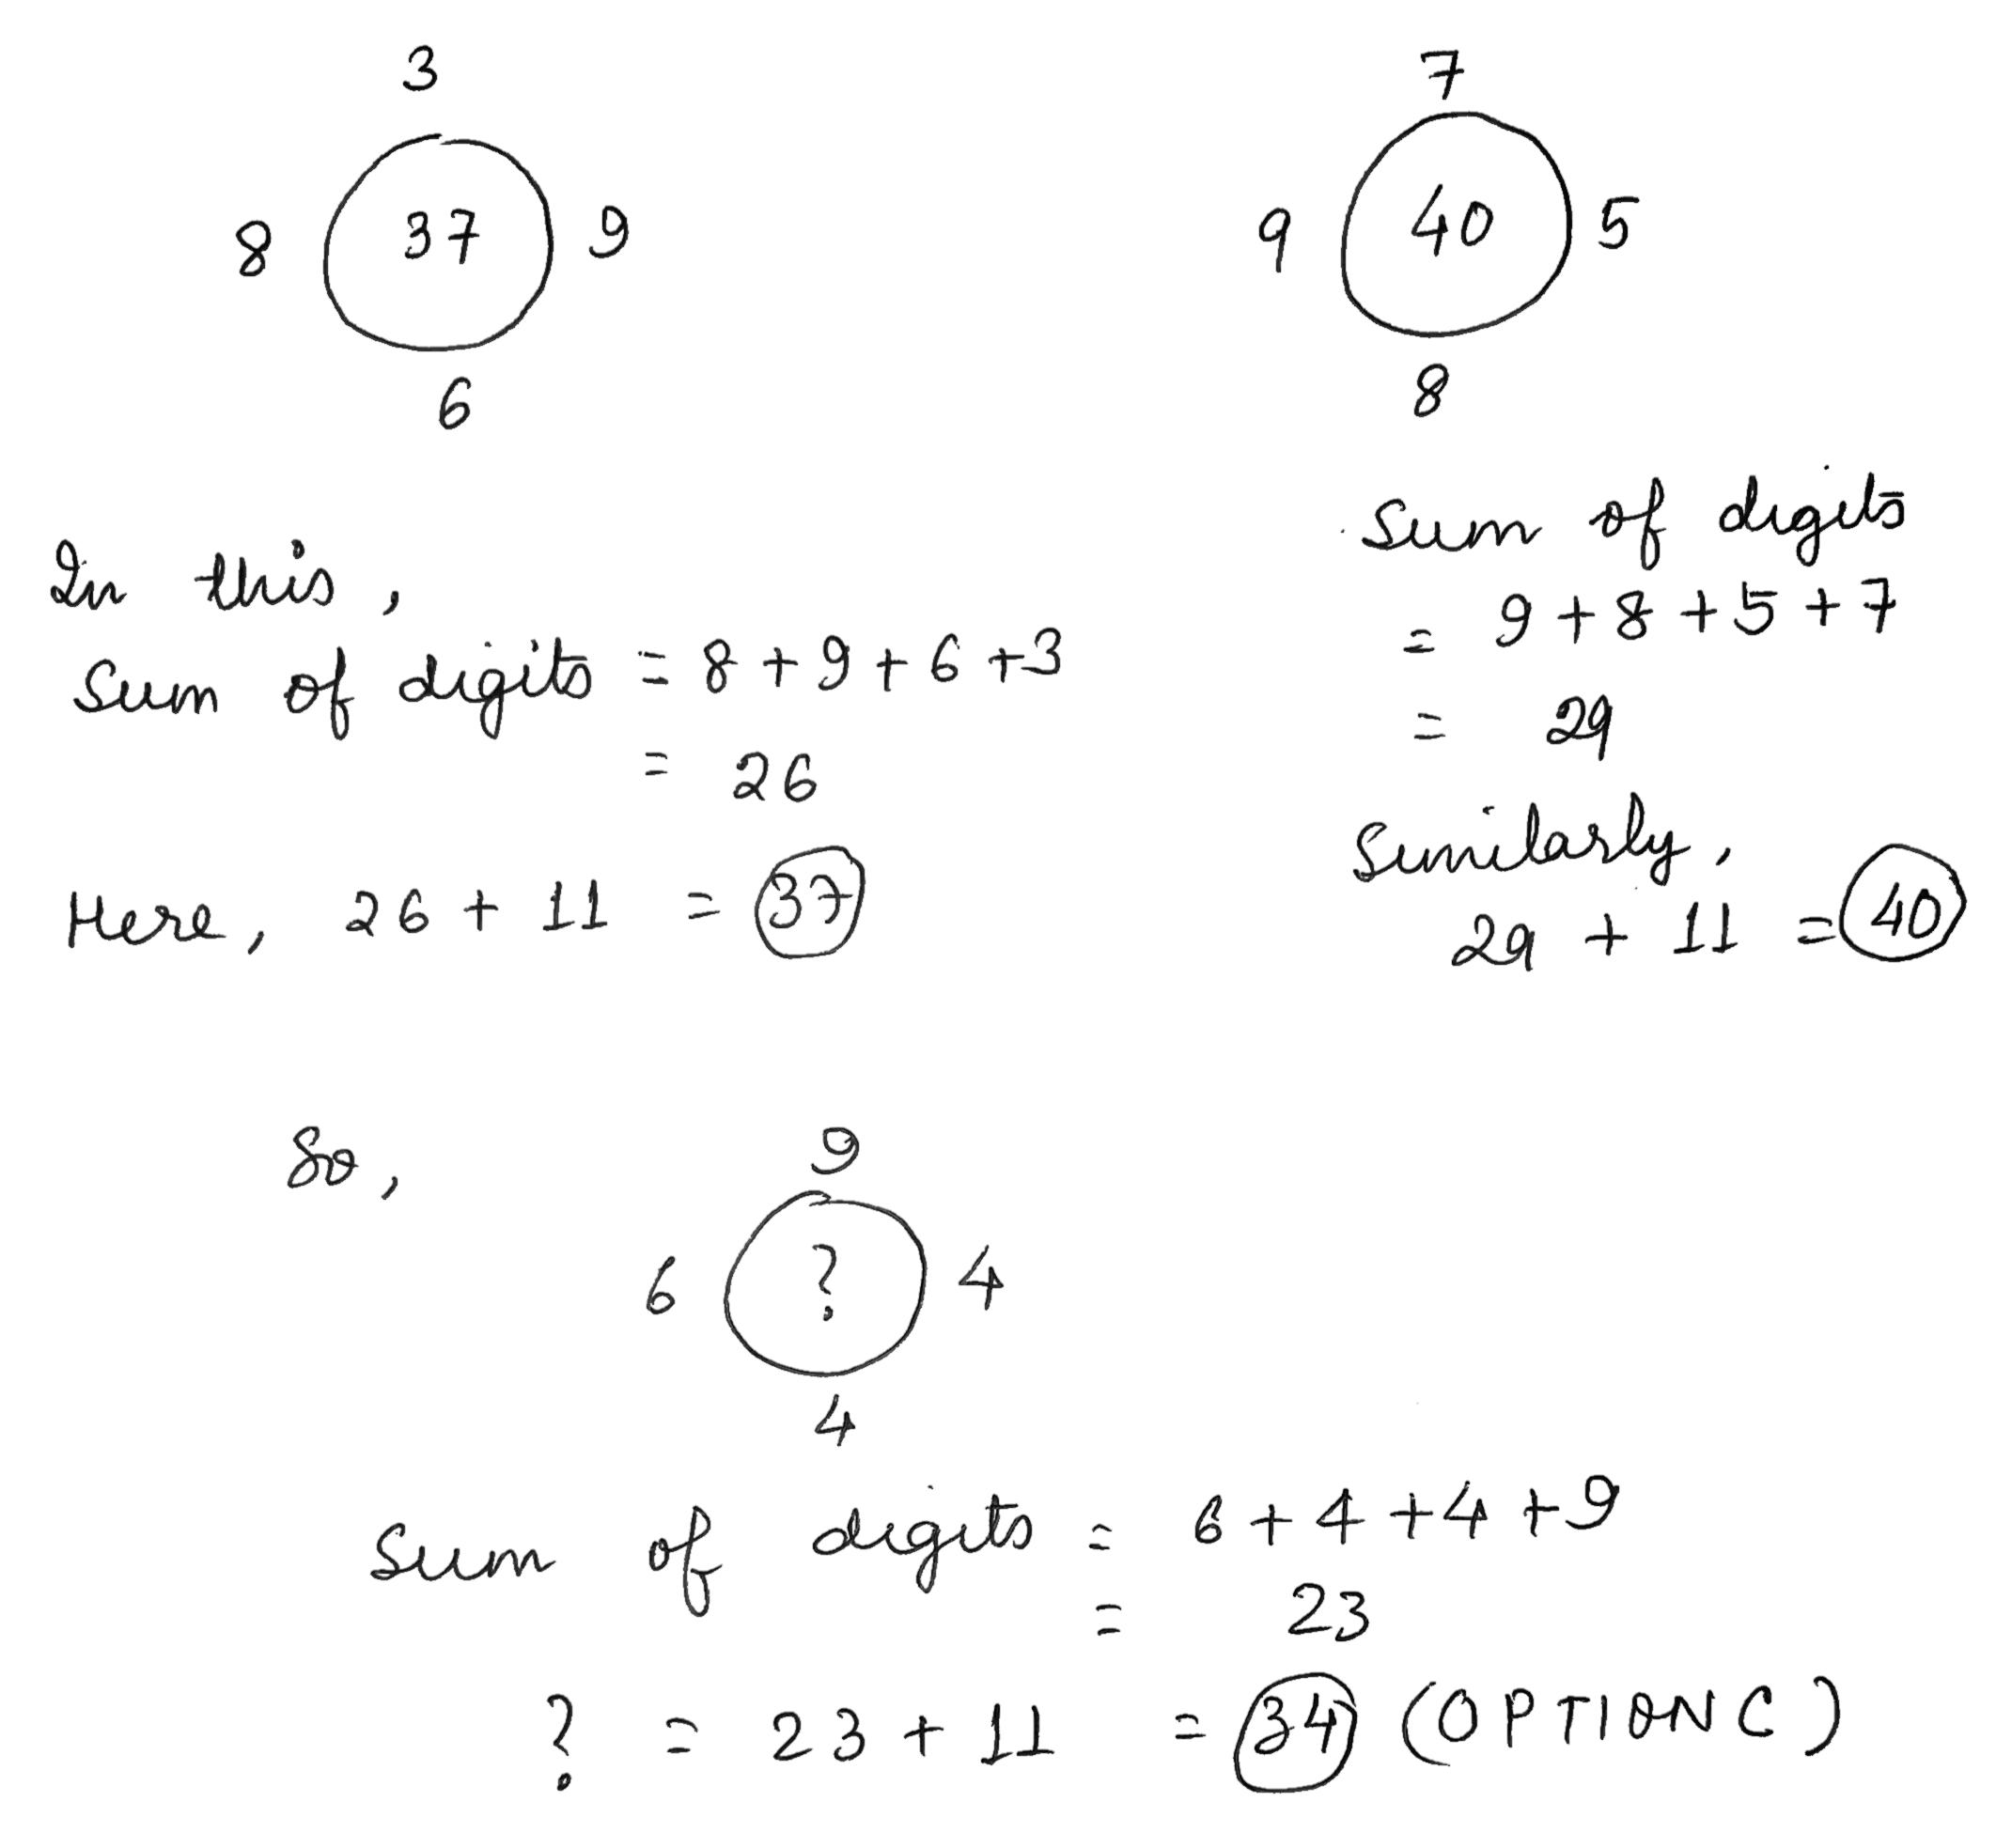 3
8 37 9
6
In this,
Sum of digits = 8 + 9 + 6 + 3
= 26
Here, 26 + 11 = 37
7
9 40 5
8
Sum of digits
= 9 + 8 + 5 + 7
= 29
Similarly,
29 + 11 = 40
So,
9
6 ? 4
4
Sum of digits = 6 + 4 + 4 + 9
= 23
? = 23 + 11 = 34 (OPTION C)